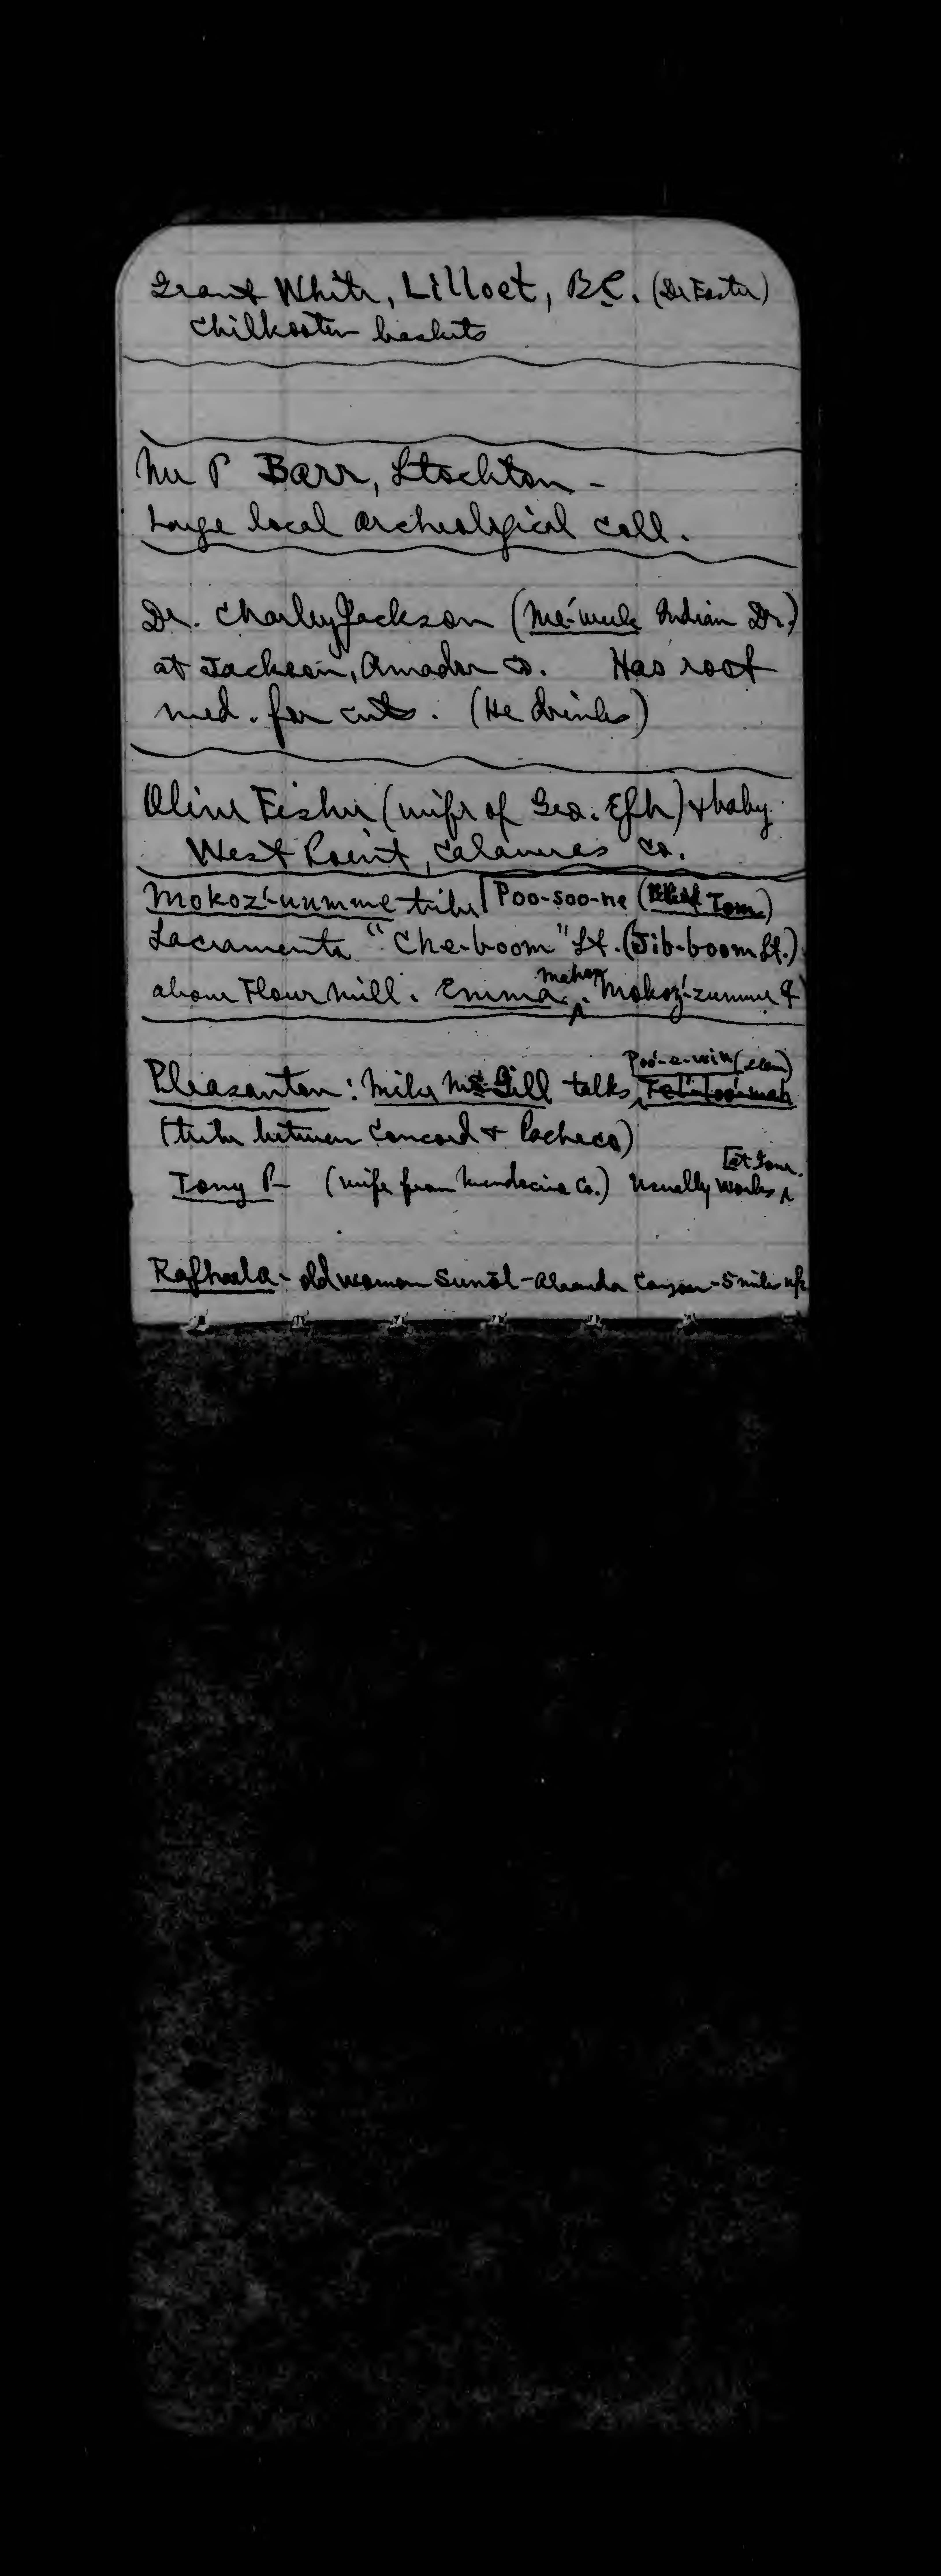 Grant White, Lilloet, B.C. (Dr Foster)
Chilkooten baskets
Mr P Barr, Stockton -
Large local archeological coll.
Dr. Charley Jackson (Me'-wuk Indian Dr.)
at Jackson, Amador Co. Has root
med. for cuts. (He drinks)
Olive Fisher (wife of Geo. Efh) & baby
West Point, Calaveras Co.
Mokoz'-umme tribe Poo-soo-ne (Tom)
Sacramento "Che-boom" St. (Jib-boom St.)
above Flour mill. Emma Mokoz'-zumme ♀
Poo'-e-win (slow)
Pleasanton: Mily McGill talks
(tribe between Concord & Pacheco)
[at Gow.
Tony P- (wife from Mendocino Co.) Usually works
Rafhaela - old woman Sunol - Canyon - 5 miles up